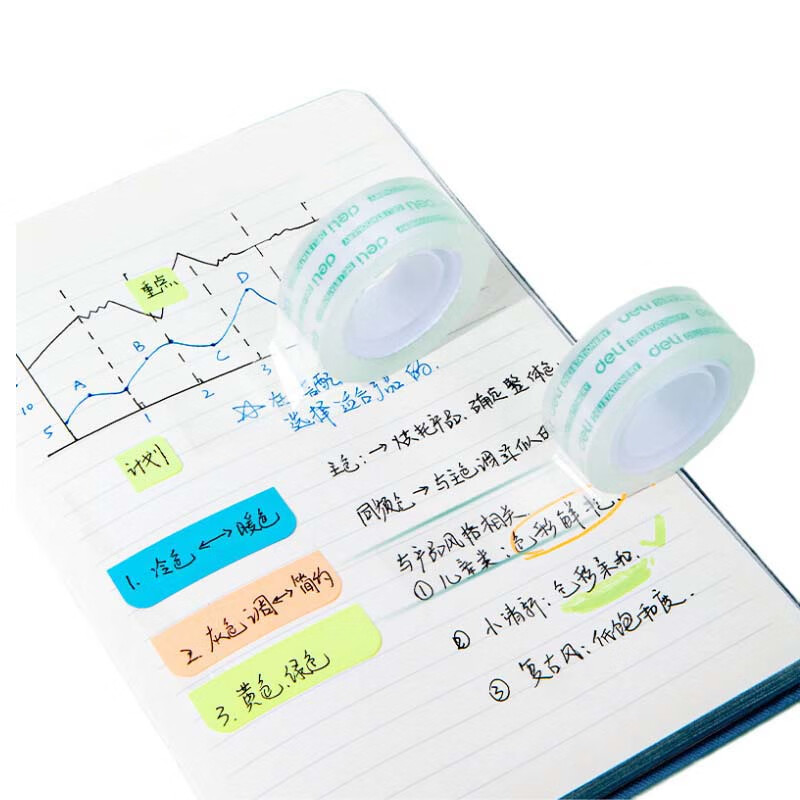 重点
D
B
A
C
S
10
1
2
3
选择适合产品的.
计划
主色:→烘托产品.确定整体色.
同频色→与主色调近似的
1. 冷色⟷暖色
与产品风格相关.
① 儿童类:色彩鲜艳.
2. 灰色调⟷简约
② 小清新:色彩柔和.
3. 黄色.绿色
③ 复古风:低饱和度.
deli
deli
deli
deli
deli STATIONERY
deli